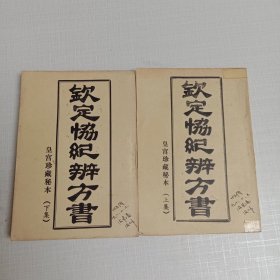 欽定恊紀辨方書
皇宮珍藏秘本
（下集）
欽定恊紀辨方書
皇宮珍藏秘本
（上集）